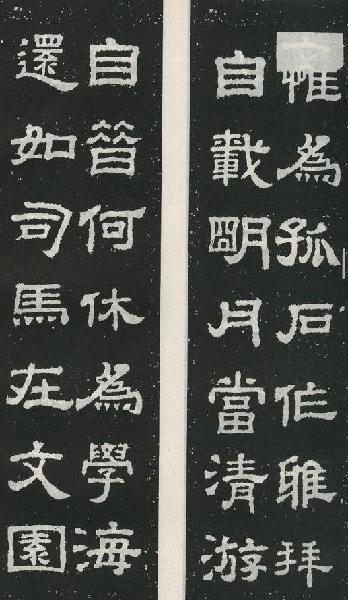 惟為孤石作雅拜
自載朙月當清游
自昔何休為學海
還如司馬在文園